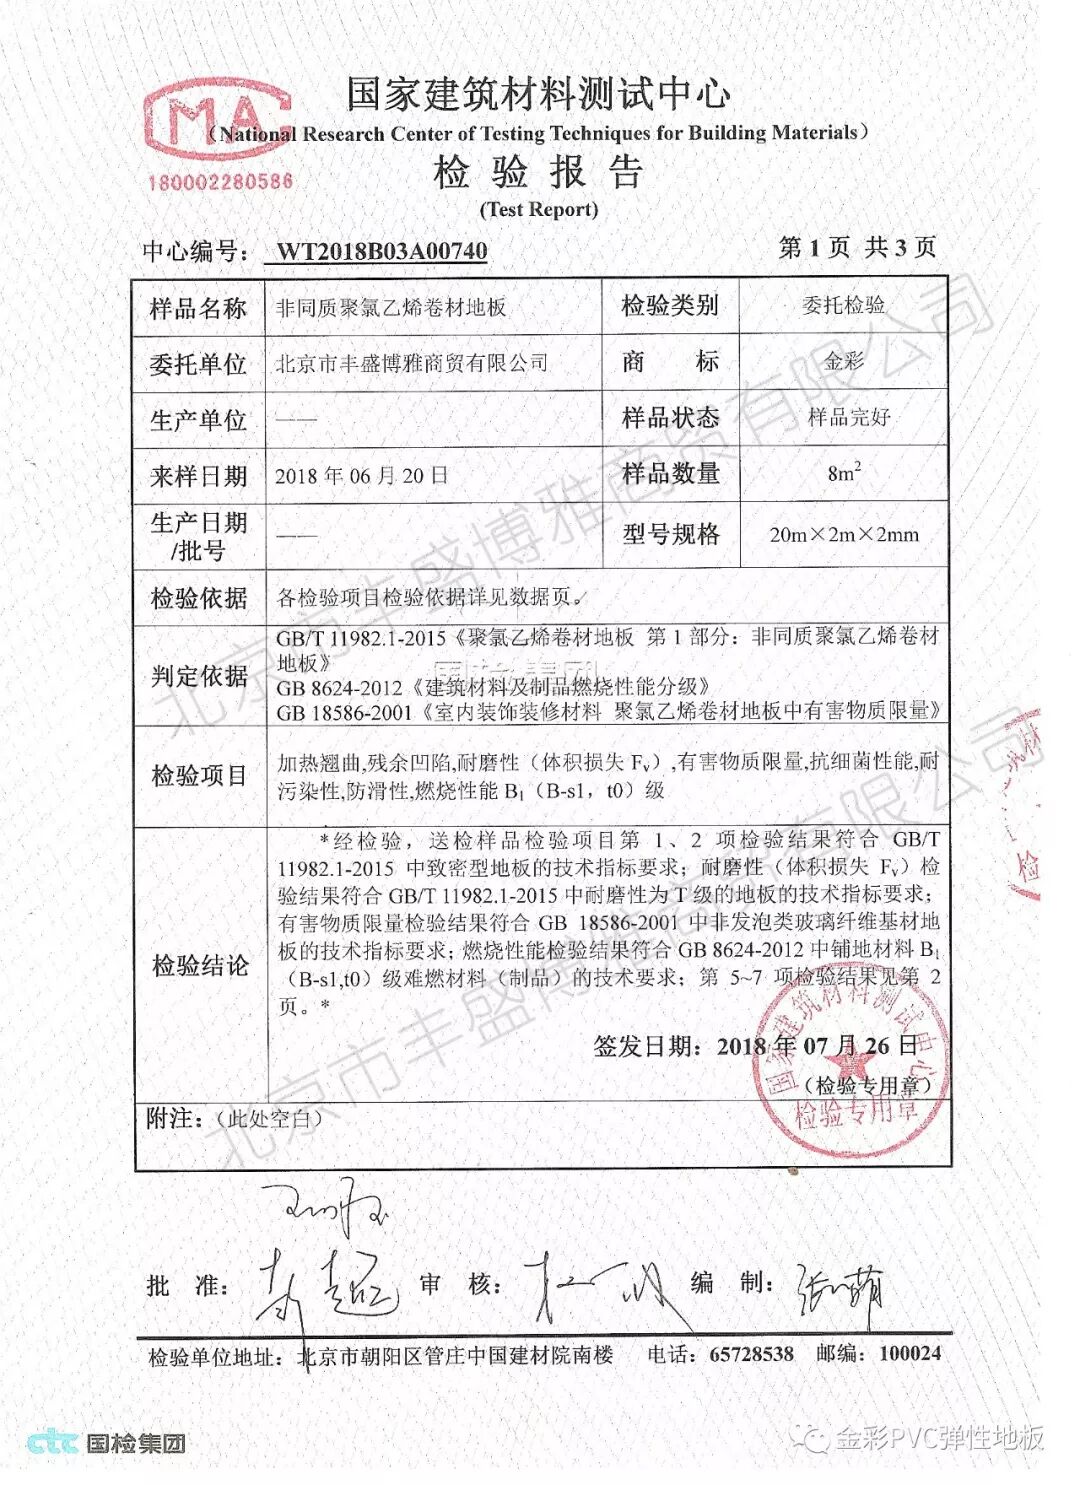 国家建筑材料测试中心
MA
(National Research Center of Testing Techniques for Building Materials)
检验报告
180002280586
(Test Report)
中心编号： WT2018B03A00740
第 1 页 共 3 页
样品名称 非同质聚氯乙烯卷材地板 检验类别 委托检验
委托单位 北京市丰盛博雅商贸有限公司 商 标 金彩
生产单位 —— 样品状态 样品完好
来样日期 2018 年 06 月 20 日 样品数量 8m²
生产日期/批号 —— 型号规格 20m×2m×2mm
检验依据 各检验项目检验依据详见数据页。
判定依据
GB/T 11982.1-2015《聚氯乙烯卷材地板 第 1 部分：非同质聚氯乙烯卷材
地板》
GB 8624-2012《建筑材料及制品燃烧性能分级》
GB 18586-2001《室内装饰装修材料 聚氯乙烯卷材地板中有害物质限量》
检验项目
加热翘曲,残余凹陷,耐磨性（体积损失 Fv）,有害物质限量,抗细菌性能,耐
污染性,防滑性,燃烧性能 B1（B-s1，t0）级
检验结论
*经检验，送检样品检验项目第 1、2 项检验结果符合 GB/T
11982.1-2015 中致密型地板的技术指标要求；耐磨性（体积损失 Fv）检
验结果符合 GB/T 11982.1-2015 中耐磨性为 T 级的地板的技术指标要求；
有害物质限量检验结果符合 GB 18586-2001 中非发泡类玻璃纤维基材地
板的技术指标要求；燃烧性能检验结果符合 GB 8624-2012 中铺地材料 B1
（B-s1,t0）级难燃材料（制品）的技术要求；第 5~7 项检验结果见第 2
页。*
签发日期：2018 年 07 月 26 日
（检验专用章）
国家建筑材料测试中心
检验专用章
附注：（此处空白）
批 准： 审 核： 编 制：
检验单位地址：北京市朝阳区管庄中国建材院南楼 电话：65728538 邮编：100024
ctc 国检集团
金彩PVC弹性地板
北京市丰盛博雅商贸有限公司
北京市丰盛博雅商贸有限公司
国检集团